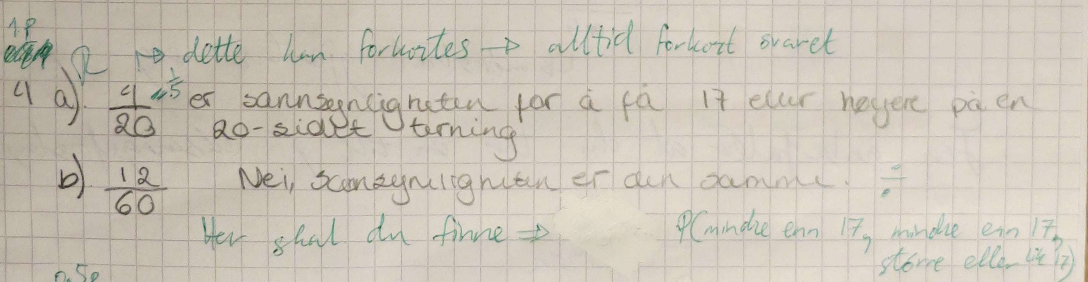 1p
R → dette kan forkortes → alltid forkort svaret
4 a) 4/20 = 1/5 er sannsynligheten for å få 17 eller høyere på en
20-sidet terning
b) 12/60 Nei, sannsynligheten er den samme. ÷
Her skal du finne ⇒ P(mindre enn 17, mindre enn 17,
større eller lik 17)
0,5p